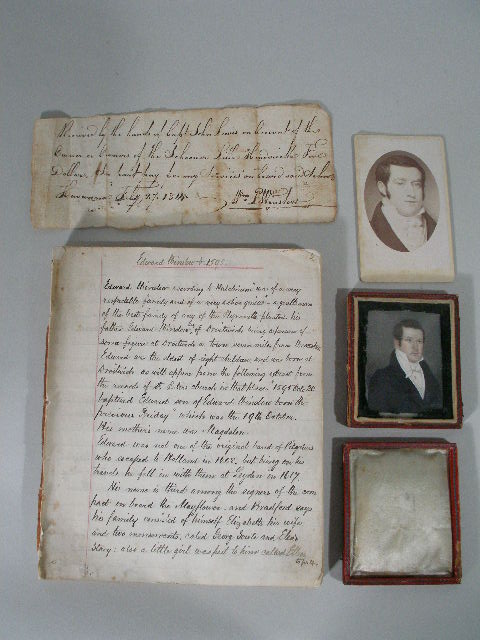 Received by the hands of Capt John Lewis on Account of the
Owner or Owners of the Schooner Five
Dollars in part pay for my Services on board said
July 27. 1814
Edward Winslow b 1595.
Edward Winslow according to Hutchinson "was of a very
respectable family and of a very active genius" - a gentleman
of the best family of any of the Plymouth planters his
father Edward Winslow of Droitwich being a person of
some figure at Droitwich a town seven miles from Worcester
Edward was the eldest of eight children and was born at
Droitwich as will appear from the following extract from
the records of St. Peters church in that place "1595 Oct. 20
baptized Edward son of Edward Winslow born the
previous Friday" which was the 19th October.
His mother's name was Magdalen.
Edward was not one of the original band of Pilgrims
who escaped to Holland in 1608. but being on his
travels he fell in with them at Leyden in 1617.
His name is third among the signers of the com
pact on board the Mayflower. and Bradford says
his family consisted of himself Elizabeth his wife
and two menservants, caled Georg Sowle and Elias
Story; also a little girl was put to him caled Ellen